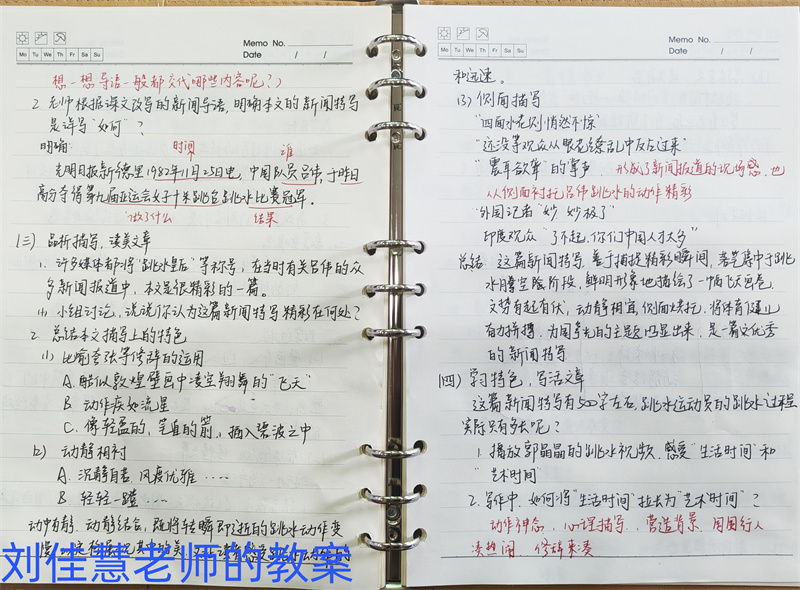 Memo No.
Mo Tu We Th Fr Sa Su
Date / /
想一想导语一般都交代哪些内容呢?)
2. 老师根据课文改写的新闻导语,明确本文的新闻特写
是详写"如何"?
明确: 时间 谁
光明日报新德里1982年11月25日电,中国队员吕伟,于昨日
高分夺得第九届亚运会女子十米跳台跳水比赛冠军。
做了什么 结果
(三) 品析描写,读美文章
1. 许多媒体都将"跳水皇后"等称号,在当时有关吕伟的众
多新闻报道中,本文是很精彩的一篇。
(1) 小组讨论,说说你认为这篇新闻特写精彩在何处?
2. 总结本文描写上的特色
(1) 比喻夸张等修辞的运用
A. 酷似敦煌壁画中凌空翔舞的"飞天"
B. 动作疾如流星
C. 像轻盈的,笔直的箭,插入碧波之中
(2) 动静相衬
A. 沉静自若,风度优雅....
B. 轻轻一蹬 ....
动中有静,动静结合,既将转瞬即逝的跳水动作变
刘佳慧老师的教案
Memo No.
Mo Tu We Th Fr Sa Su
Date / /
和迅速。
(3) 侧面描写
"四面水花则悄然不惊"
"还没等观众从眼花缭乱中反应过来"
"震耳欲聋"的掌声, 形成了新闻报道的现场感,也
从侧面衬托吕伟跳水的动作精彩
"外国记者"妙 妙极了"
印度观众"了不起,你们中国人才太多"
总结:这篇新闻特写,善于捕捉精彩瞬间,着笔集中于跳
水腾空阶段,鲜明形象地描绘了一幅飞天画卷,
文势有起有伏,动静相宜,侧面烘托,将体育健儿
奋力拼搏,为国争光的主题凸显出来,是一篇文优秀
的新闻特写
(四) 学习特色,写活文章
这篇新闻特写有500字左右,跳水运动员的跳水过程
实际只有多长呢?
1. 播放郭晶晶的跳水视频,感受"生活时间"和
"艺术时间"
2. 写作中,如何将"生活时间"拉长为"艺术时间"?
动作神态,心理描写,营造背景,周围行人
凑热闹,修辞来凑